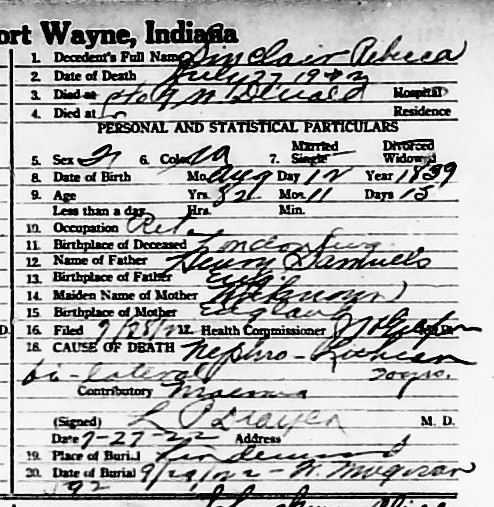 ort Wayne, Indiana
1. Decedent's Full Name Sinclair Rebeca
2. Date of Death July 27 1922
3. Died at Hospital
4. Died at Residence
PERSONAL AND STATISTICAL PARTICULARS
Married Divorced
5. Sex F 6. Color W 7. Single Widowed
8. Date of Birth Mo. Aug Day 12 Year 1839
9. Age Yrs. 82 Mos. 11 Days 15
Less than a day Hrs. Min.
10. Occupation Ret.
11. Birthplace of Deceased London Eng
12. Name of Father Henry Samuels
13. Birthplace of Father Eng
14. Maiden Name of Mother (Unknown)
15. Birthplace of Mother England
D. 16. Filed 7/28/22 Health Commissioner M.D.
18. CAUSE OF DEATH Nephro-
bi-lateral
Contributory
(Signed) M. D.
Date 7-27-22 Address
19. Place of Burial Lindenwood
20. Date of Burial